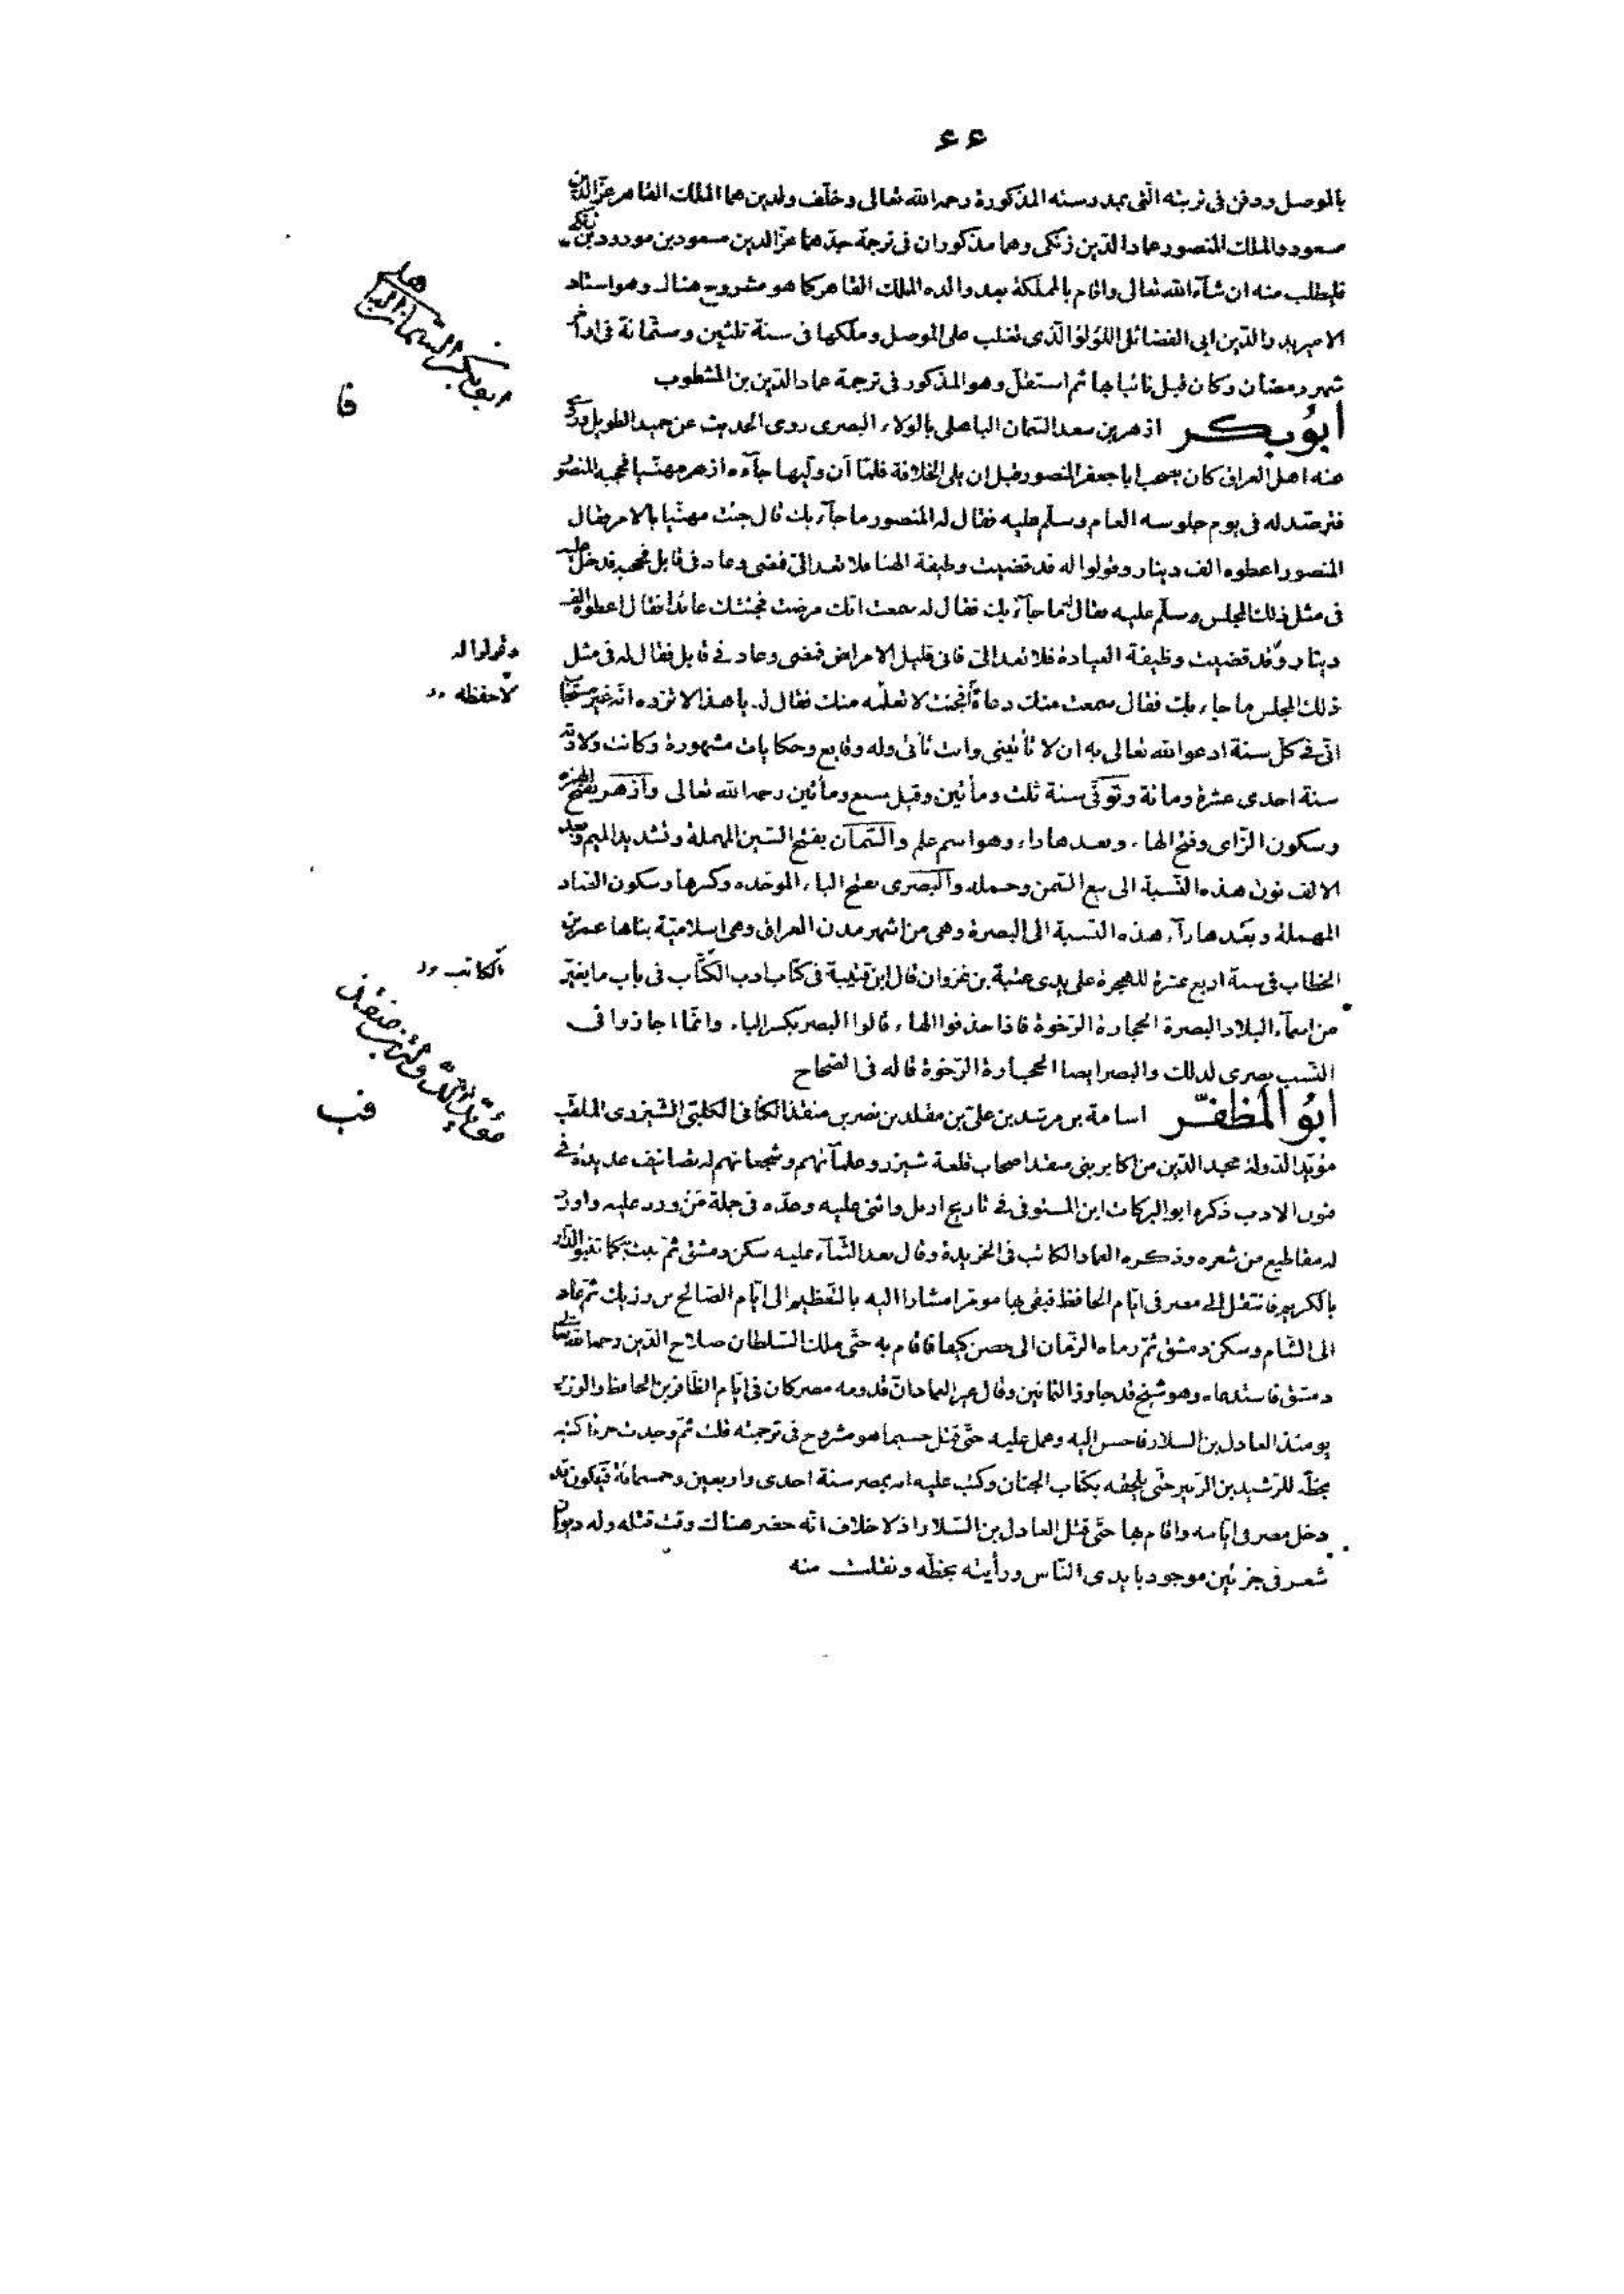 ٤٤
بالموصل ودفن فى تربته الّتى بمدرسته المذكورة رحمه الله تعالى وخلّف ولدين هما الملك القاهر عزّ الدّين
مسعود والملك المنصور عماد الدّين زنكى وهما مذكوران فى ترجمة جدّهما عزّ الدين مسعود بن مودود بن زنكى
فليطلب منه ان شآء الله تعالى واقام بالمملكة بعد والده الملك القاهر كما هو مشروح هناك وهو استاد
الامير بدر الدّين ابى الفضائل اللؤلؤ الّذى تغلب على الموصل وملكها فى سنة ثلثين وستّمائة فى اواخر
شهر رمضان وكان قبل نائبا بها ثم استقلّ وهو المذكور فى ترجمة عماد الدّين بن المشطوب
أبوُبكر ازهر بن سعد السّمان الباهلى بالولاء البصرى روى الحديث عن حميد الطويل وروى
عنه اهل العراق كان يصحب ابا جعفر المنصور قبل ان يلى الخلافة فلمّا أن وليها جآءه ازهر مهنّيا فحجبه المنصوُر
فترصّد له فى يوم جلوسه العام وسلّم عليه فقال له المنصور ما جآء بك قال جئت مهنّيا بالامر فقال
المنصور اعطوه الف دينار وقولوا له قد قضيت وظيفة الهنا فلا تعد الىّ فمضى وعاد فى قابل فحجبه فدخل عليه
فى مثل ذلك المجلس وسلّم عليه فقال له ما جآء بك فقال له سمعت انّك مرضت فجئتك عائدا فقال اعطوه الف
دينار وقد قضيت وظيفة العيادة فلا تعد الىّ فانى قليل الامراض فمضى وعاد فى قابل فقال له فى مثل
وقولوا له
ذلك المجلس ما جاء بك فقال سمعت منك دعاءً فجئت لاتعلّمه منك فقال له يا هذا لا تزده انّه غير مستجاب
لاحفظه
انّى فى كلّ سنة ادعوا الله تعالى به ان لا تأتينى وانت تأتى وله وقايع وحكايات مشهورة وكانت ولادته
سنة احدى عشرة ومائة وتوفّى سنة ثلث ومأتين وقيل سبع ومأتين رحمه الله تعالى وأزهر بفتح الهمزة
وسكون الزّاى وفتح الهاء وبعدها راء وهو اسم علم والسّمان بفتح السّين المهملة وتشديد الميم وبعد
الالف نون هذه النّسبة الى بيع السّمن وحمله والبصرى بفتح الباء الموحّده وكسرها وسكون الصّاد
المهملة وبعدها رآء هذه النّسبة الى البصرة وهى من اشهر مدن العراق وهى اسلاميّة بناها عمر بن
الخطاب فى سنة اربع عشرة للهجرة على يدى عتبة بن غزوان قال ابن قتيبة فى كتاب ادب الكتّاب فى باب ما يغيّر
الكاتب
من اسمآء البلاد البصرة الحجارة الرّخوة فاذا حذفوا الهاء قالوا البصر بكسر الباء وانّما اجازوا فى
النّسب بصرى لذلك والبصر ايضا الحجارة الرّخوة قاله فى الصّحاح
أبوُ المظفّر اسامة بن مرشد بن علىّ بن مقلد بن نصر بن منقذ الكنانى الكلبىّ الشيزرى الملقّب
مؤيّد الدّولة مجد الدّين من اكابر بنى منقذ اصحاب قلعة شيزر وعلمآئهم وشجعانهم له تصانيف عديدة فى
فنون الادب ذكره ابو البركات ابن المستوفى فى تاريخ اربل واثنى عليه وعدّه فى جملة من ورد عليه واورد
له مقاطيع من شعره وذكره العماد الكاتب فى الخريدة وقال بعد الثّناء عليه سكن دمشق ثمّ نبت به كما تنبو الدّار
بالكريم فانتقل الى مصر فى ايّام الحافظ فبقى بها موقرا مشارا اليه بالتّعظيم الى ايّام الصّالح بن رزيك ثمّ عاد
الى الشّام وسكن دمشق ثمّ رماه الزّمان الى حصن كيفا فاقام به حتّى ملك السّلطان صلاح الدّين رحمه الله تعالى
دمشق فاستدعاه وهو شيخ قد جاوز الثمانين وقال غير العماد انّ قدومه مصر كان فى ايّام الظّافر بن الحافظ والوزير
يومئذ العادل بن السلار فاحسن اليه وعمل عليه حتّى قتل حسبما هو مشروح فى ترجمته قلت ثمّ وجدت جزءا كتبه
بخطّه للرّشيد بن الزّبير حتّى يلحقه بكتاب الجنان وكتب عليه انه بمصر سنة احدى واربعين وخمسمائة فيكون قد
دخل مصر فى ايّامه واقام بها حتّى قتل العادل بن السّلار اذ لا خلاف انّه حضر هناك وقت قتله وله ديوان
شعر فى جزئين موجود بايدى النّاس ورأيته بخطّه ونقلت منه
قا
قب